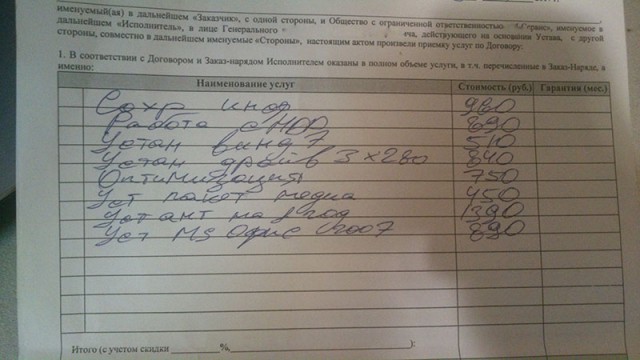 именуемый(ая) в дальнейшем «Заказчик», с одной стороны, и Общество с ограниченной ответственностью сервис», именуемое в
дальнейшем «Исполнитель», в лице Генерального ча, действующего на основании Устава, с другой
стороны, совместно в дальнейшем именуемые «Стороны», настоящим актом произвели приемку услуг по Договору.
1. В соответствии с Договором и Заказ-нарядом Исполнителем оказаны в полном объеме услуги, в т.ч. перечисленные в Заказ-Наряде, а
именно:
Наименование услуг Стоимость (руб.) Гарантия (мес.)
Сохр инф 980
Работа с HDD 890
Устан винд 7 510
Устан драйв 3 x 280 840
Оптимизация 750
Уст пакет медиа 450
Уст ант на год 1390
Уст MS Офис 2007 890
Итого (с учетом скидки %, ):